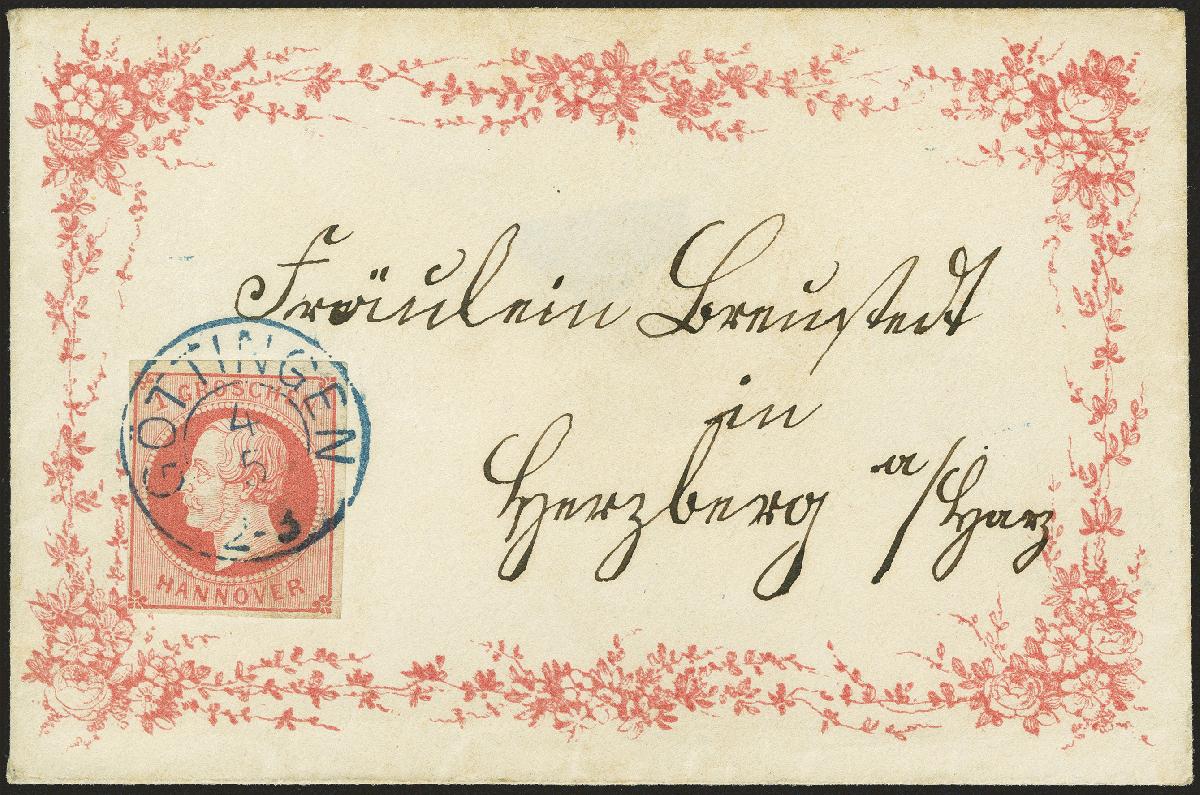 Fräulein Breustedt
in
Herzberg a/Harz
GÖTTINGEN
4
5
2-3
1 GROSCHEN
HANNOVER